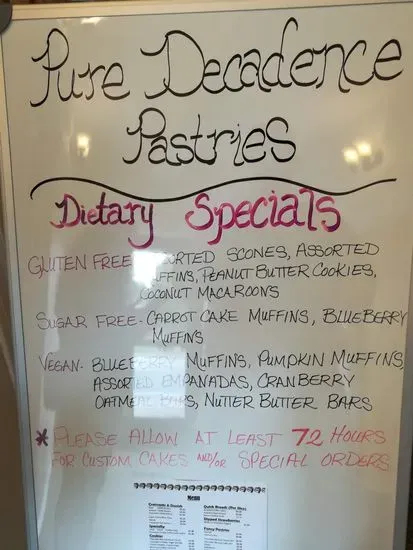 Pure Decadence
Pastries
Dietary Specials
GLUTEN FREE- ASSORTED SCONES, ASSORTED
MUFFINS, PEANUT BUTTER COOKIES,
COCONUT MACAROONS
SUGAR FREE- CARROT CAKE MUFFINS, BLUEBERRY
MUFFINS
VEGAN- BLUEBERRY MUFFINS, PUMPKIN MUFFINS,
ASSORTED EMPANADAS, CRANBERRY
OATMEAL BARS, NUTTER BUTTER BARS
* PLEASE ALLOW AT LEAST 72 HOURS
FOR CUSTOM CAKES AND/OR SPECIAL ORDERS
Menu
Croissants & Danish
Quick Breads (Per Slice)
Dipped Strawberries
Specialty
Fancy Pastries
Cookies